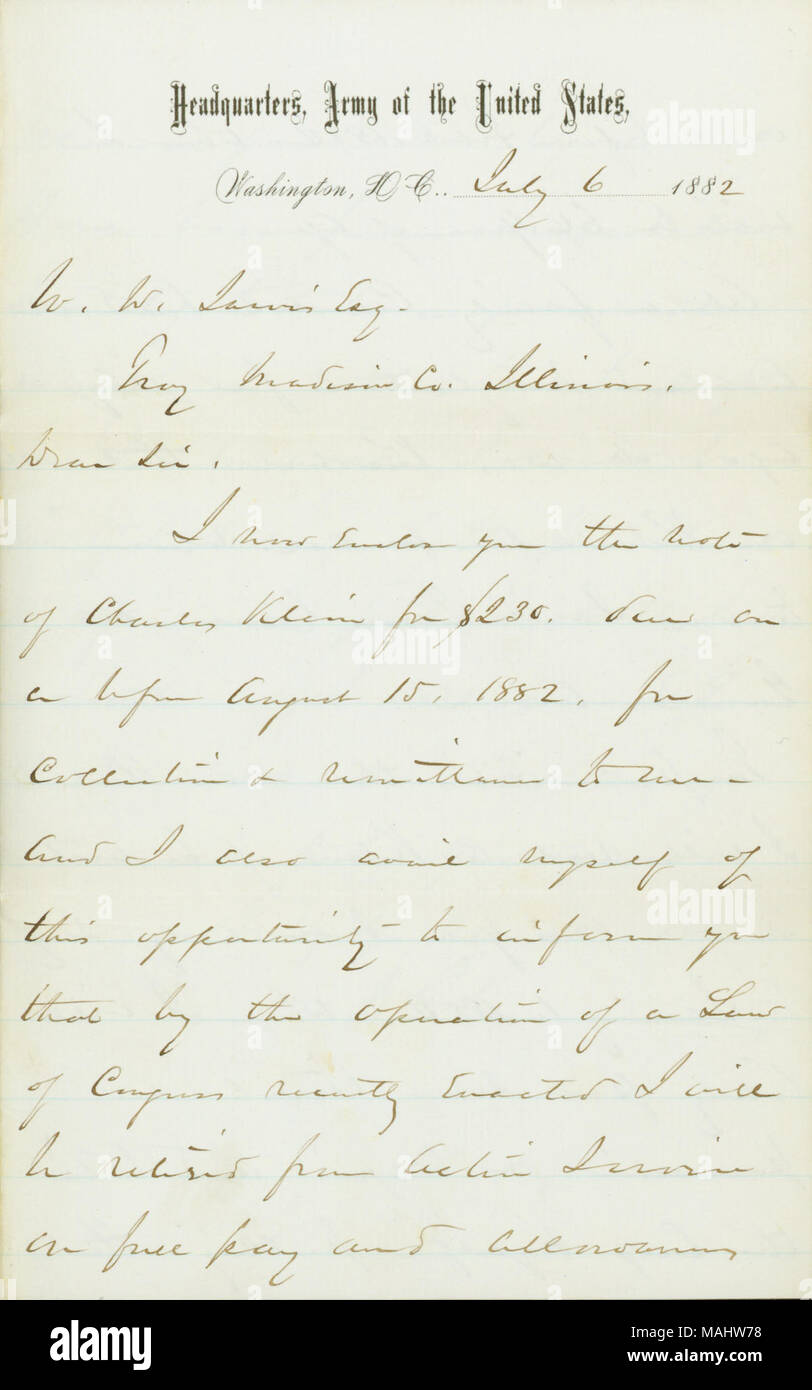 Headquarters, Army of the United States,
Washington, D.C., July 6 1882
W. W. Jarvis Esq.
Troy Madison Co. Illinois.
Dear Sir.
I now enclose you the note
of Charles Klein for $230. due on
or before August 15, 1882, for
Collection & remittance to me -
And I also avail myself of
this opportunity to inform you
that by the operation of a Law
of Congress recently Enacted I will
be retired from Active Service
on full pay and allowances
alamy
alamy
alamy
alamy
alamy
Image ID: MAHW78
www.alamy.com